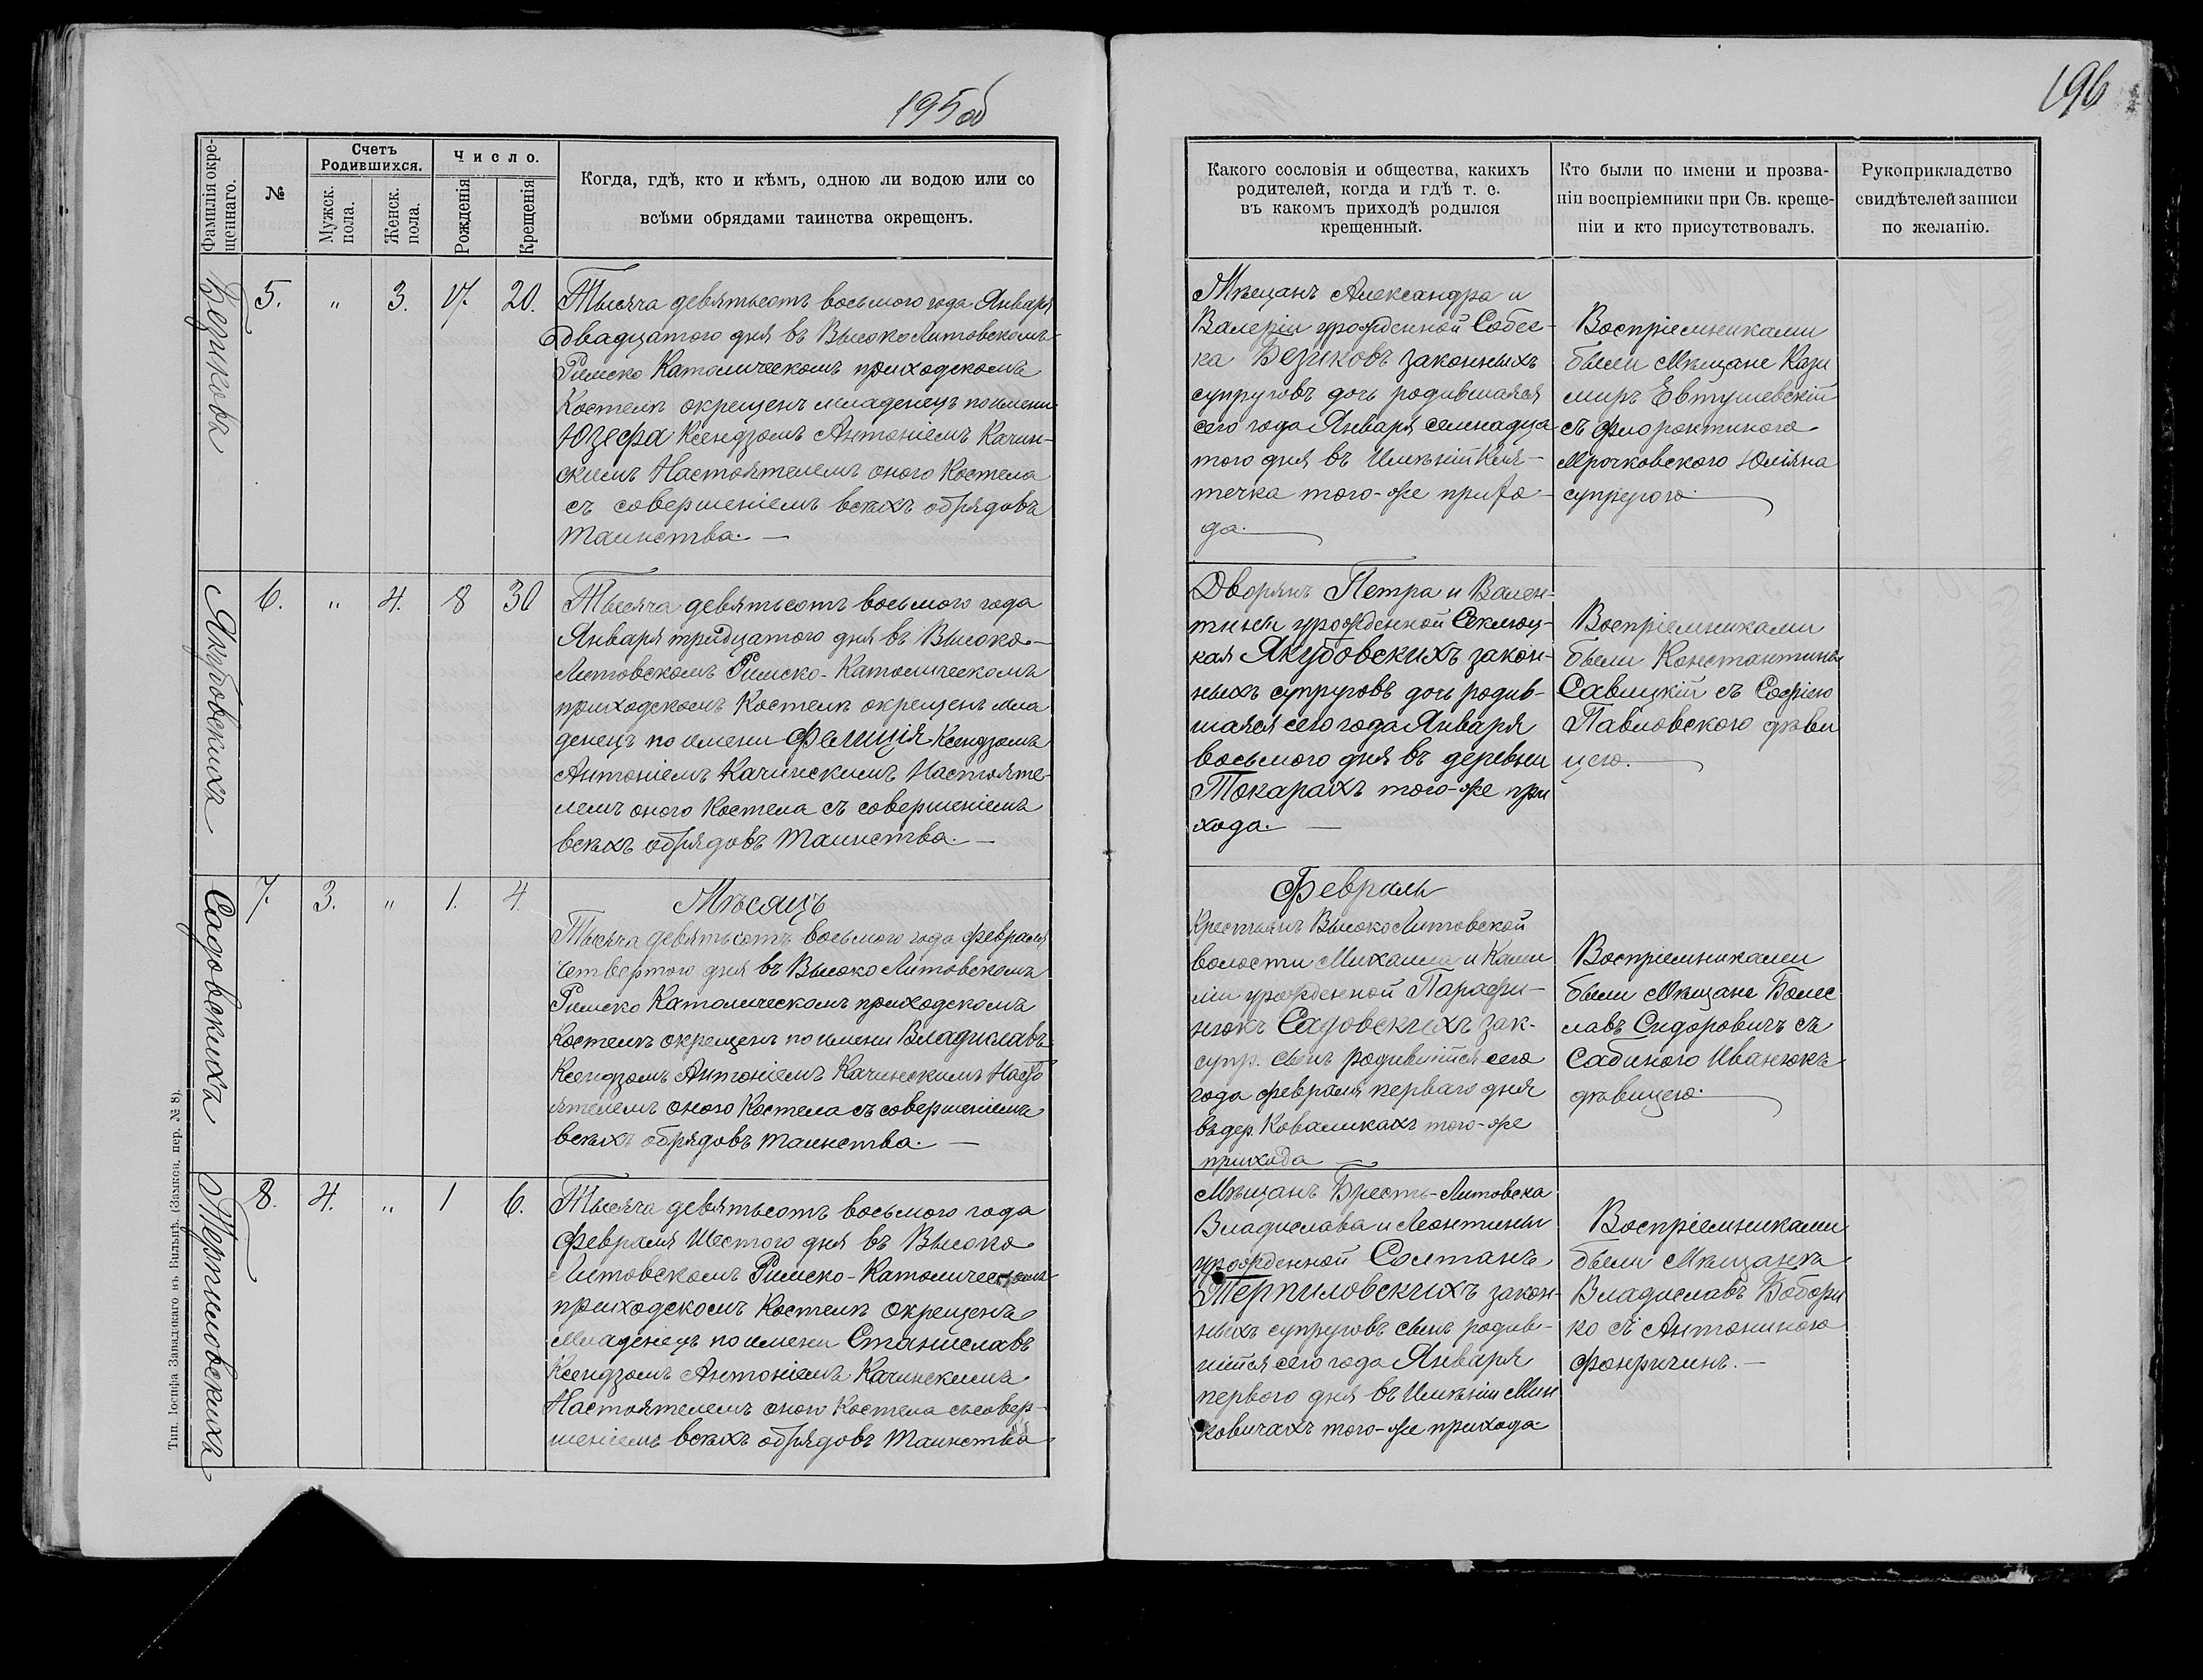 195об
196
Фамилія окре-
щеннаго.
№
Счетъ
Родившихся.
Мужск.
пола.
Женск.
пола.
Число.
Рожденія
Крещенія
Когда, гдѣ, кто и кѣмъ, одною ли водою или со
всѣми обрядами таинства окрещенъ.
Какого сословія и общества, какихъ
родителей, когда и гдѣ т. е.
въ какомъ приходѣ родился
крещенный.
Кто были по имени и прозва-
ніи воспріемники при Св. креще-
ніи и кто присутствовалъ.
Рукоприкладство
свидѣтелей записи
по желанію.
Безикова
5. " 3. 17. 20.
Тысяча девятьсотъ восьмого года Января
двадцатого дня въ Высоко Литовскомъ
Римско Католическомъ приходскомъ
Костелѣ окрещенъ младенецъ по имени
Юзефа Ксендзомъ Антоніемъ Качин-
скимъ Настоятелемъ оного Костела
съ совершеніемъ всѣхъ обрядовъ
таинства. —
Мѣщанъ Александра и
Валеріи урожденной Собес-
ка Безиковъ законныхъ
супруговъ дочь родившаяся
сего года Января семнадца
того дня въ Имѣніи Кля-
течка того-же прихо-
да.
Воспріемниками
были Мѣщане Кази
миръ Евтушевскій
съ Флорентиного
Мрочковского Юліяна
супругого.
Якубовскихъ
6. " 4. 8 30
Тысяча девятьсотъ восьмого года
Января тридцатого дня въ Высоко-
Литовскомъ Римско-Католическомъ
приходскомъ Костелѣ окрещенъ мла
денецъ по имени Фелиція Ксендзомъ
Антоніемъ Качинскимъ Настояте-
лемъ оного Костела съ совершеніемъ
всѣхъ обрядовъ таинства. —
Дворянъ Петра и Вален-
тины урожденной Секлюц-
кая Якубовскихъ закон-
ныхъ супруговъ дочь родив-
шаяся сего года Января
восьмого дня въ деревни
Токарахъ того-же при
хода. —
Воспріемниками
были Константинъ
Савицкій съ Софіею
Павловского дѣви
цею.
Садовскихъ
7. 3. " 1. 4.
Мѣсяцъ
Тысяча девятьсотъ восьмого года февраля
четвертого дня въ Высоко Литовскомъ
Римско Католическомъ приходскомъ
Костелѣ окрещенъ по имени Владиславъ
Ксендзомъ Антоніемъ Качинскимъ Насто
ятелемъ оного Костела съ совершеніемъ
всѣхъ обрядовъ таинства. —
Февраль
Крестьянъ Высоко Литовской
волости Михаила и Ками
ліи урожденной Парафи-
нюкъ Садовскихъ зак.
супр. сынъ родившійся сего
года февраля перваго дня
въ дер. Коваликахъ того-же
прихода —
Воспріемниками
были Мѣщане Болес
лавъ Сидоровичъ съ
Сабиного Иванюкъ
дѣвицею.
Терпиловскихъ
8. 4. " 1 6.
Тысяча девятьсотъ восьмого года
февраля Шестого дня въ Высоко
Литовскомъ Римско-Католическомъ
приходскомъ Костелѣ окрещенъ
Младенецъ по имени Станиславъ
Ксендзомъ Антоніемъ Качинскимъ
Настоятелемъ оного Костела съ совер-
шеніемъ всѣхъ обрядовъ таинства
Мѣщанъ Брестъ-Литовска
Владислава и Леонтины
урожденной Солтанъ
Терпиловскихъ закон-
ныхъ супруговъ сынъ родив-
шійся сего года Января
первого дня въ Имѣніи Мин
ковичахъ того-же прихода.
Воспріемниками
были Мѣщанъ
Владиславъ Бобори
ко съ Антониною
Фонричинъ. —
Тип. Іосифа Завадзкаго въ Вильнѣ. (Замков. пер. № 8).